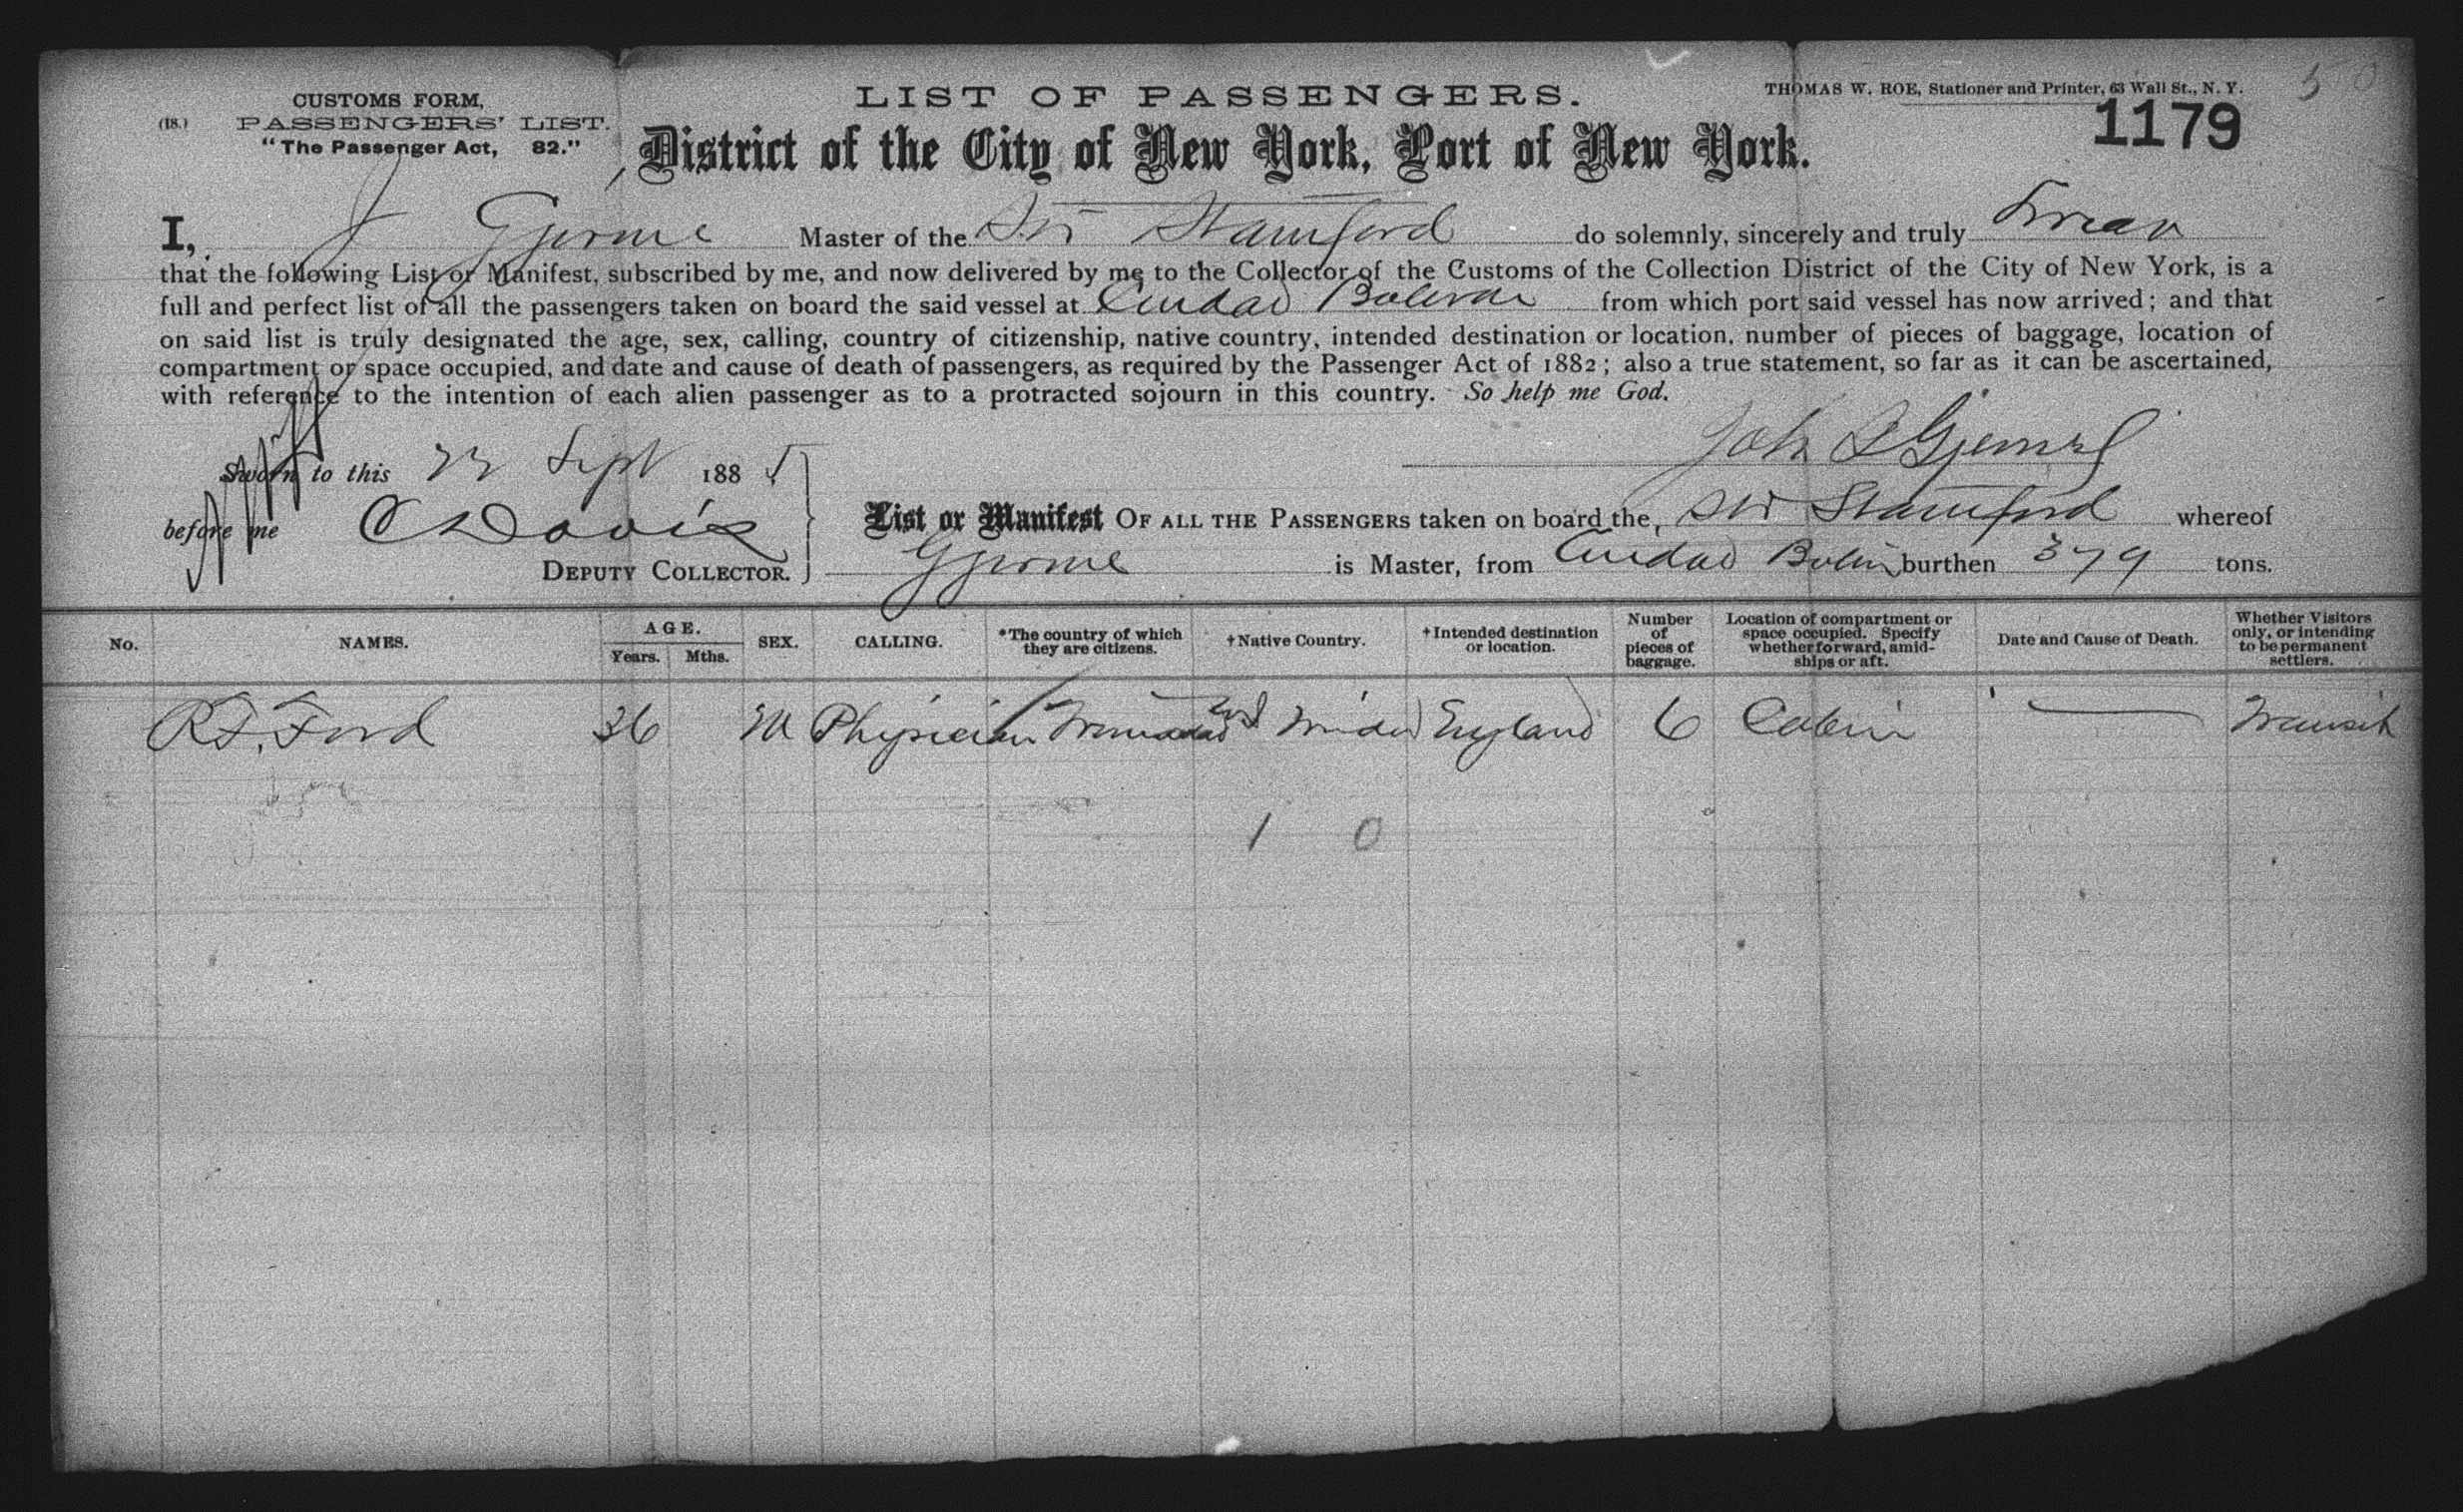 CUSTOMS FORM,
(18.) PASSENGERS' LIST.
"The Passenger Act, 82."
LIST OF PASSENGERS.
THOMAS W. ROE, Stationer and Printer, 63 Wall St., N. Y.
50
1179
District of the City of New York, Port of New York.
I, J Gjerme Master of the Str Stamford do solemnly, sincerely and truly swear
that the following List or Manifest, subscribed by me, and now delivered by me to the Collector of the Customs of the Collection District of the City of New York, is a
full and perfect list of all the passengers taken on board the said vessel at Ciudad Bolivar from which port said vessel has now arrived; and that
on said list is truly designated the age, sex, calling, country of citizenship, native country, intended destination or location, number of pieces of baggage, location of
compartment or space occupied, and date and cause of death of passengers, as required by the Passenger Act of 1882; also a true statement, so far as it can be ascertained,
with reference to the intention of each alien passenger as to a protracted sojourn in this country. So help me God.
Sworn to this 22 Sept 1885
before me C Davis
DEPUTY COLLECTOR.
List or Manifest OF ALL THE PASSENGERS taken on board the, Str Stamford whereof
Gjerme is Master, from Ciudad Boliv burthen 379 tons.
No. NAMES. AGE. Years. Mths. SEX. CALLING. *The country of which they are citizens. †Native Country. †Intended destination or location. Number of pieces of baggage. Location of compartment or space occupied. Specify whether forward, amidships or aft. Date and Cause of Death. Whether Visitors only, or intending to be permanent settlers.
R.F. Ford 36 M Physician Trinidad England 6 Cabin Transit
1 0